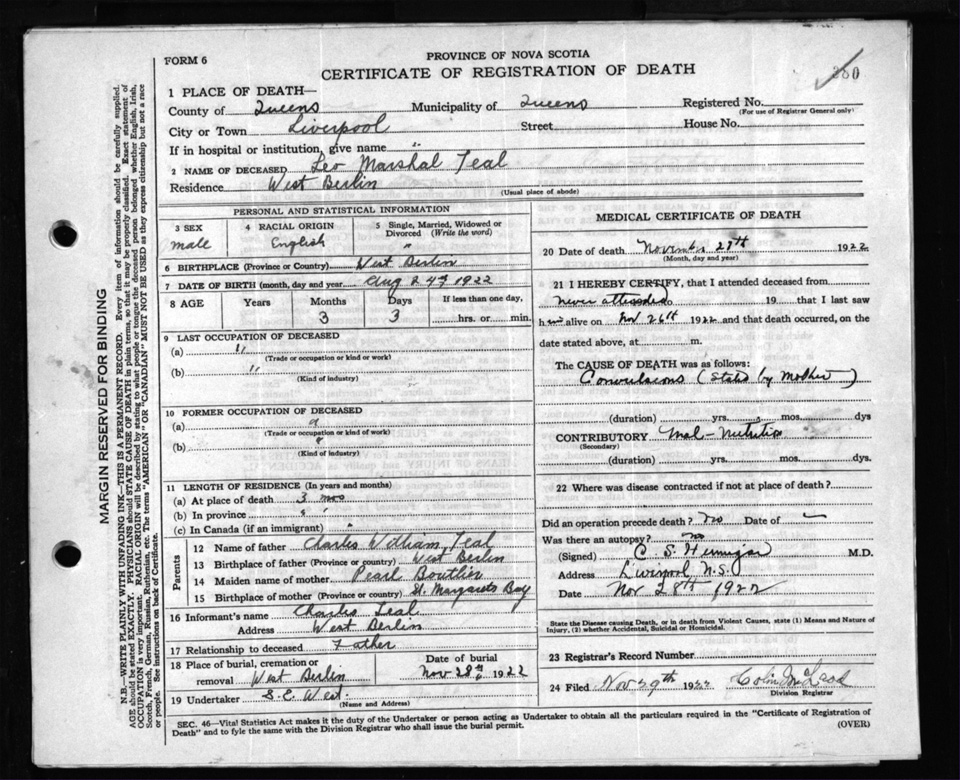 380
FORM 6
PROVINCE OF NOVA SCOTIA
CERTIFICATE OF REGISTRATION OF DEATH
1 PLACE OF DEATH—
County of Queens Municipality of Queens Registered No.
(For use of Registrar General only)
City or Town Liverpool Street House No.
If in hospital or institution, give name "
2 NAME OF DECEASED Leo Marshal Teal
Residence West Berlin
(Usual place of abode)
PERSONAL AND STATISTICAL INFORMATION
3 SEX 4 RACIAL ORIGIN 5 Single, Married, Widowed or Divorced (Write the word)
male English "
6 BIRTHPLACE (Province or Country) West Berlin
7 DATE OF BIRTH (month, day and year) Aug 24th 1922
8 AGE Years Months Days If less than one day,
3 3 hrs. or min.
9 LAST OCCUPATION OF DECEASED
(a) "
(Trade or occupation or kind or work)
(b) "
(Kind of industry)
10 FORMER OCCUPATION OF DECEASED
(a)
(Trade or occupation or kind of work)
(b)
(Kind of industry)
11 LENGTH OF RESIDENCE (In years and months)
(a) At place of death 3 mos
(b) In province " "
(c) In Canada (if an immigrant) "
Parents
12 Name of father Charles William Teal
13 Birthplace of father (Province or country) West Berlin
14 Maiden name of mother Pearl Boutlier
15 Birthplace of mother (Province or country) St. Margarets Bay
16 Informant's name Charles Teal
Address West Berlin
17 Relationship to deceased Father
18 Place of burial, cremation or removal West Berlin
Date of burial
Nov 28th 1922
19 Undertaker S.C. West.
(Name and Address)
MEDICAL CERTIFICATE OF DEATH
20 Date of death November 27th 1922
(Month, day and year)
21 I HEREBY CERTIFY, that I attended deceased from
never attended 19 that I last saw
him alive on Nov 26th 1922 and that death occurred, on
date stated above, at m.
The CAUSE OF DEATH was as follows:
Convulsions (State by Mother)
(duration) yrs. mos. dys
CONTRIBUTORY Mal-Nutrition
(Secondary)
(duration) yrs. mos. dys.
22 Where was disease contracted if not at place of death?
Did an operation precede death? no Date of
Was there an autopsy? no
(Signed) C. S. Hennigar M.D.
Address Liverpool N.S.
Date Nov 28th 1922
State the Disease causing Death, or in death from Violent Causes, state (1) Means and Nature of
Injury, (2) whether Accidental, Suicidal or Homicidal.
23 Registrar's Record Number
24 Filed Nov 29th 1922 Colin McLeod
Division Registrar
SEC. 46—Vital Statistics Act makes it the duty of the Undertaker or person acting as Undertaker to obtain all the particulars required in the "Certificate of Registration of
Death" and to fyle the same with the Division Registrar who shall issue the burial permit.
(OVER)
MARGIN RESERVED FOR BINDING
N.B.—WRITE PLAINLY WITH UNFADING INK—THIS IS A PERMANENT RECORD. Every item of information should be carefully supplied.
AGE should be stated EXACTLY. PHYSICIANS should STATE CAUSE OF DEATH in plain terms, so that it may be properly classified. Exact statement of
OCCUPATION is very important. RACIAL ORIGIN will be described by stating to what people or tongue the deceased person belonged whether English, Irish,
Scotch, French, German, Russian, Ruthenian, etc. The terms "AMERICAN" OR "CANADIAN" MUST NOT BE USED as they express citizenship but not a race
or people. See instructions on back of Certificate.